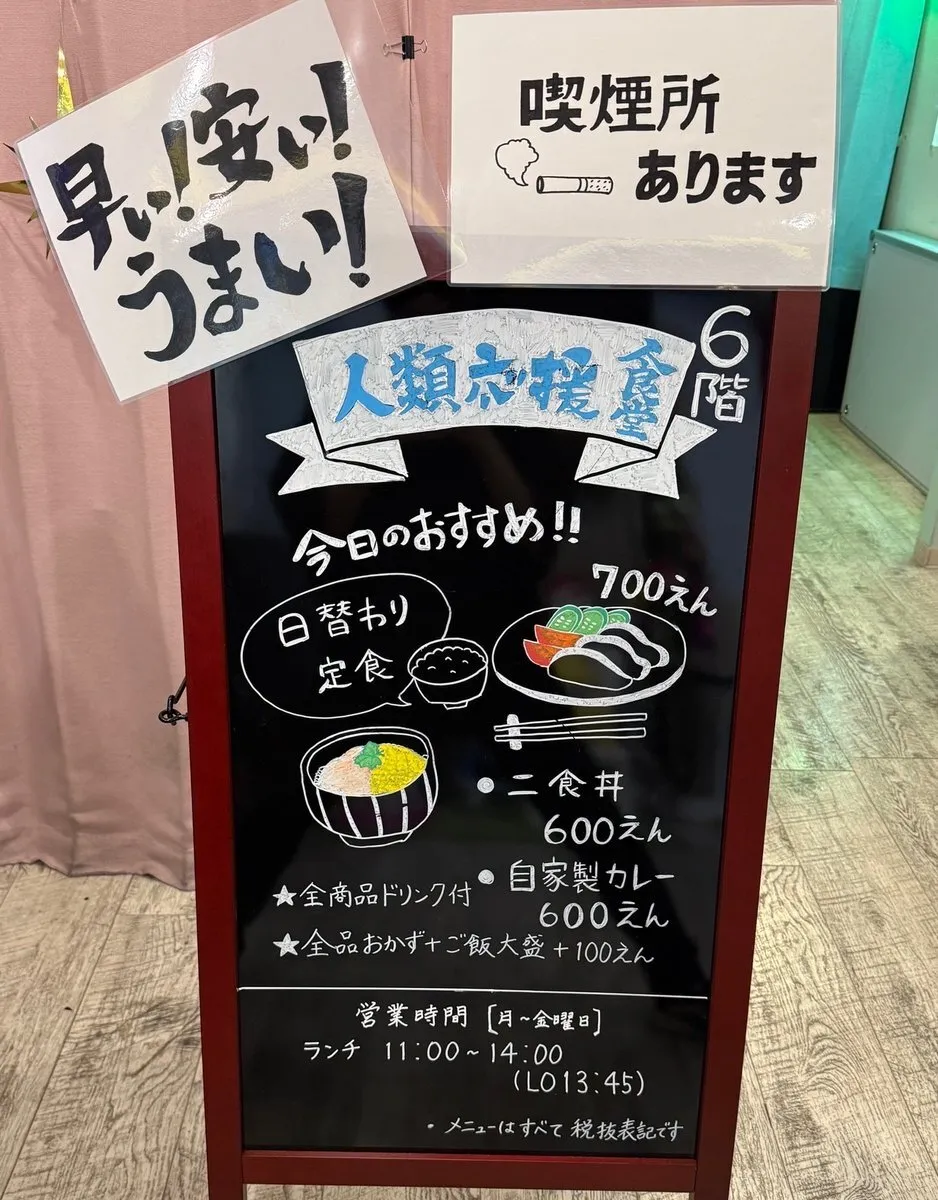 早い!安い!
うまい!
喫煙所
あります
6階
人類応援食堂
今日のおすすめ!!
700えん
日替わり
定食
• 二食丼
600えん
• 自家製カレー
600えん
★全商品ドリンク付
★全品おかず+ご飯大盛+100えん
営業時間 [月~金曜日]
ランチ 11:00~14:00
(LO13:45)
・メニューはすべて税抜表記です